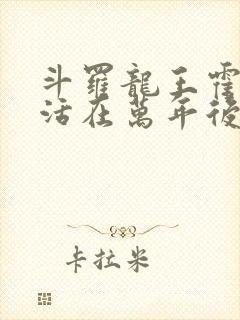 斗羅龍王霍
活在萬年後
卡拉米